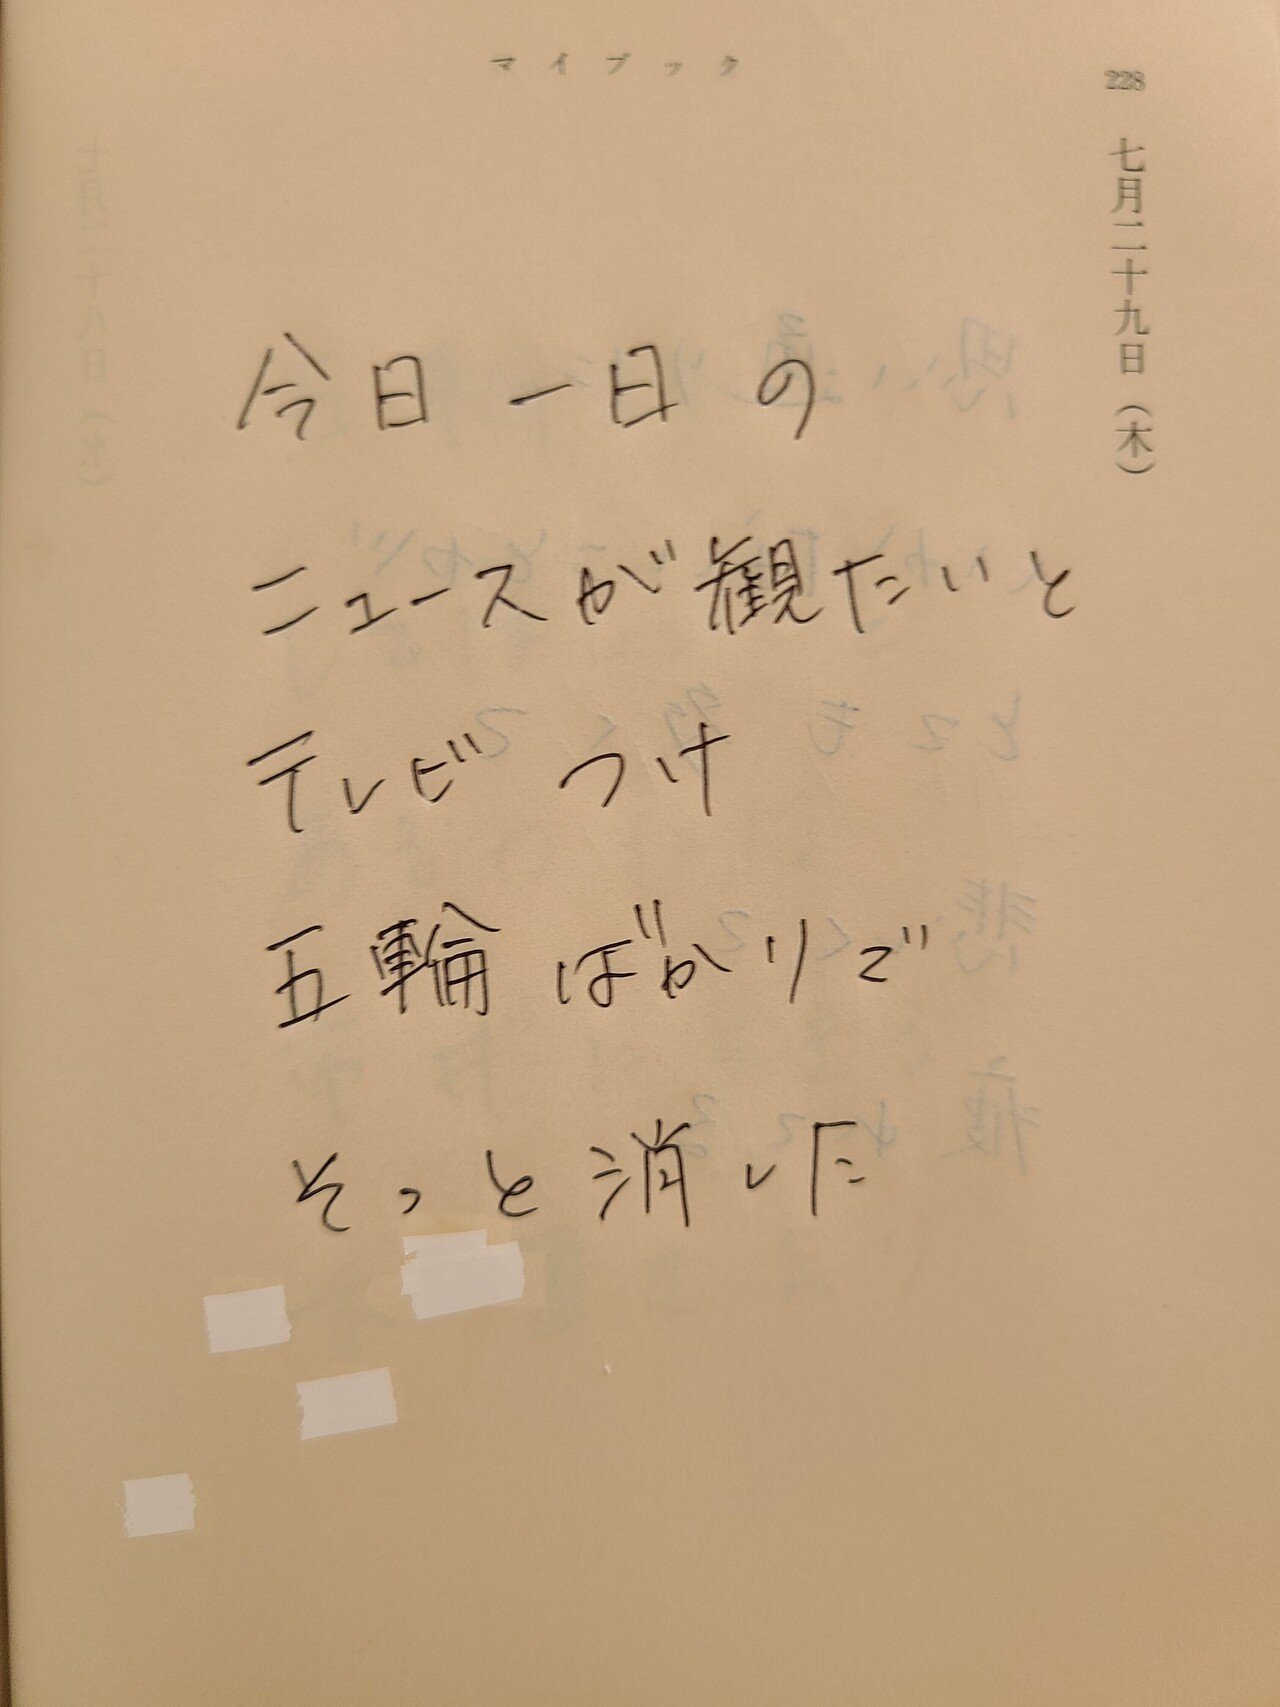 マイブック
228
七月二十九日（木）
今日一日の
ニュースが観たいと
テレビつけ
五輪ばかりで
そっと消した